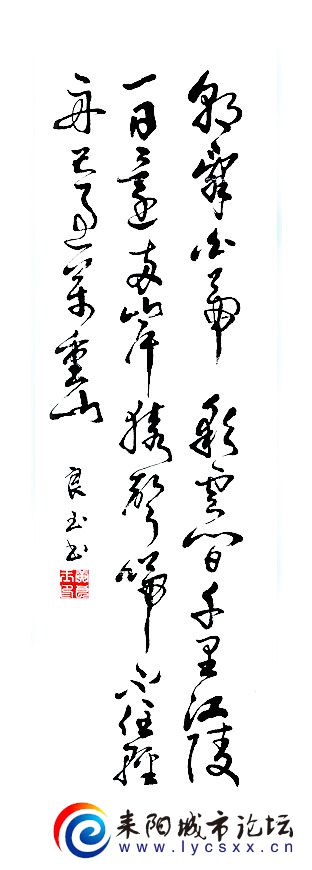 朝辞白帝彩云间千里江陵
一日还两岸猿声啼不住轻
舟已过万重山
良玉书
耒阳城市论坛
www.lycsxx.cn